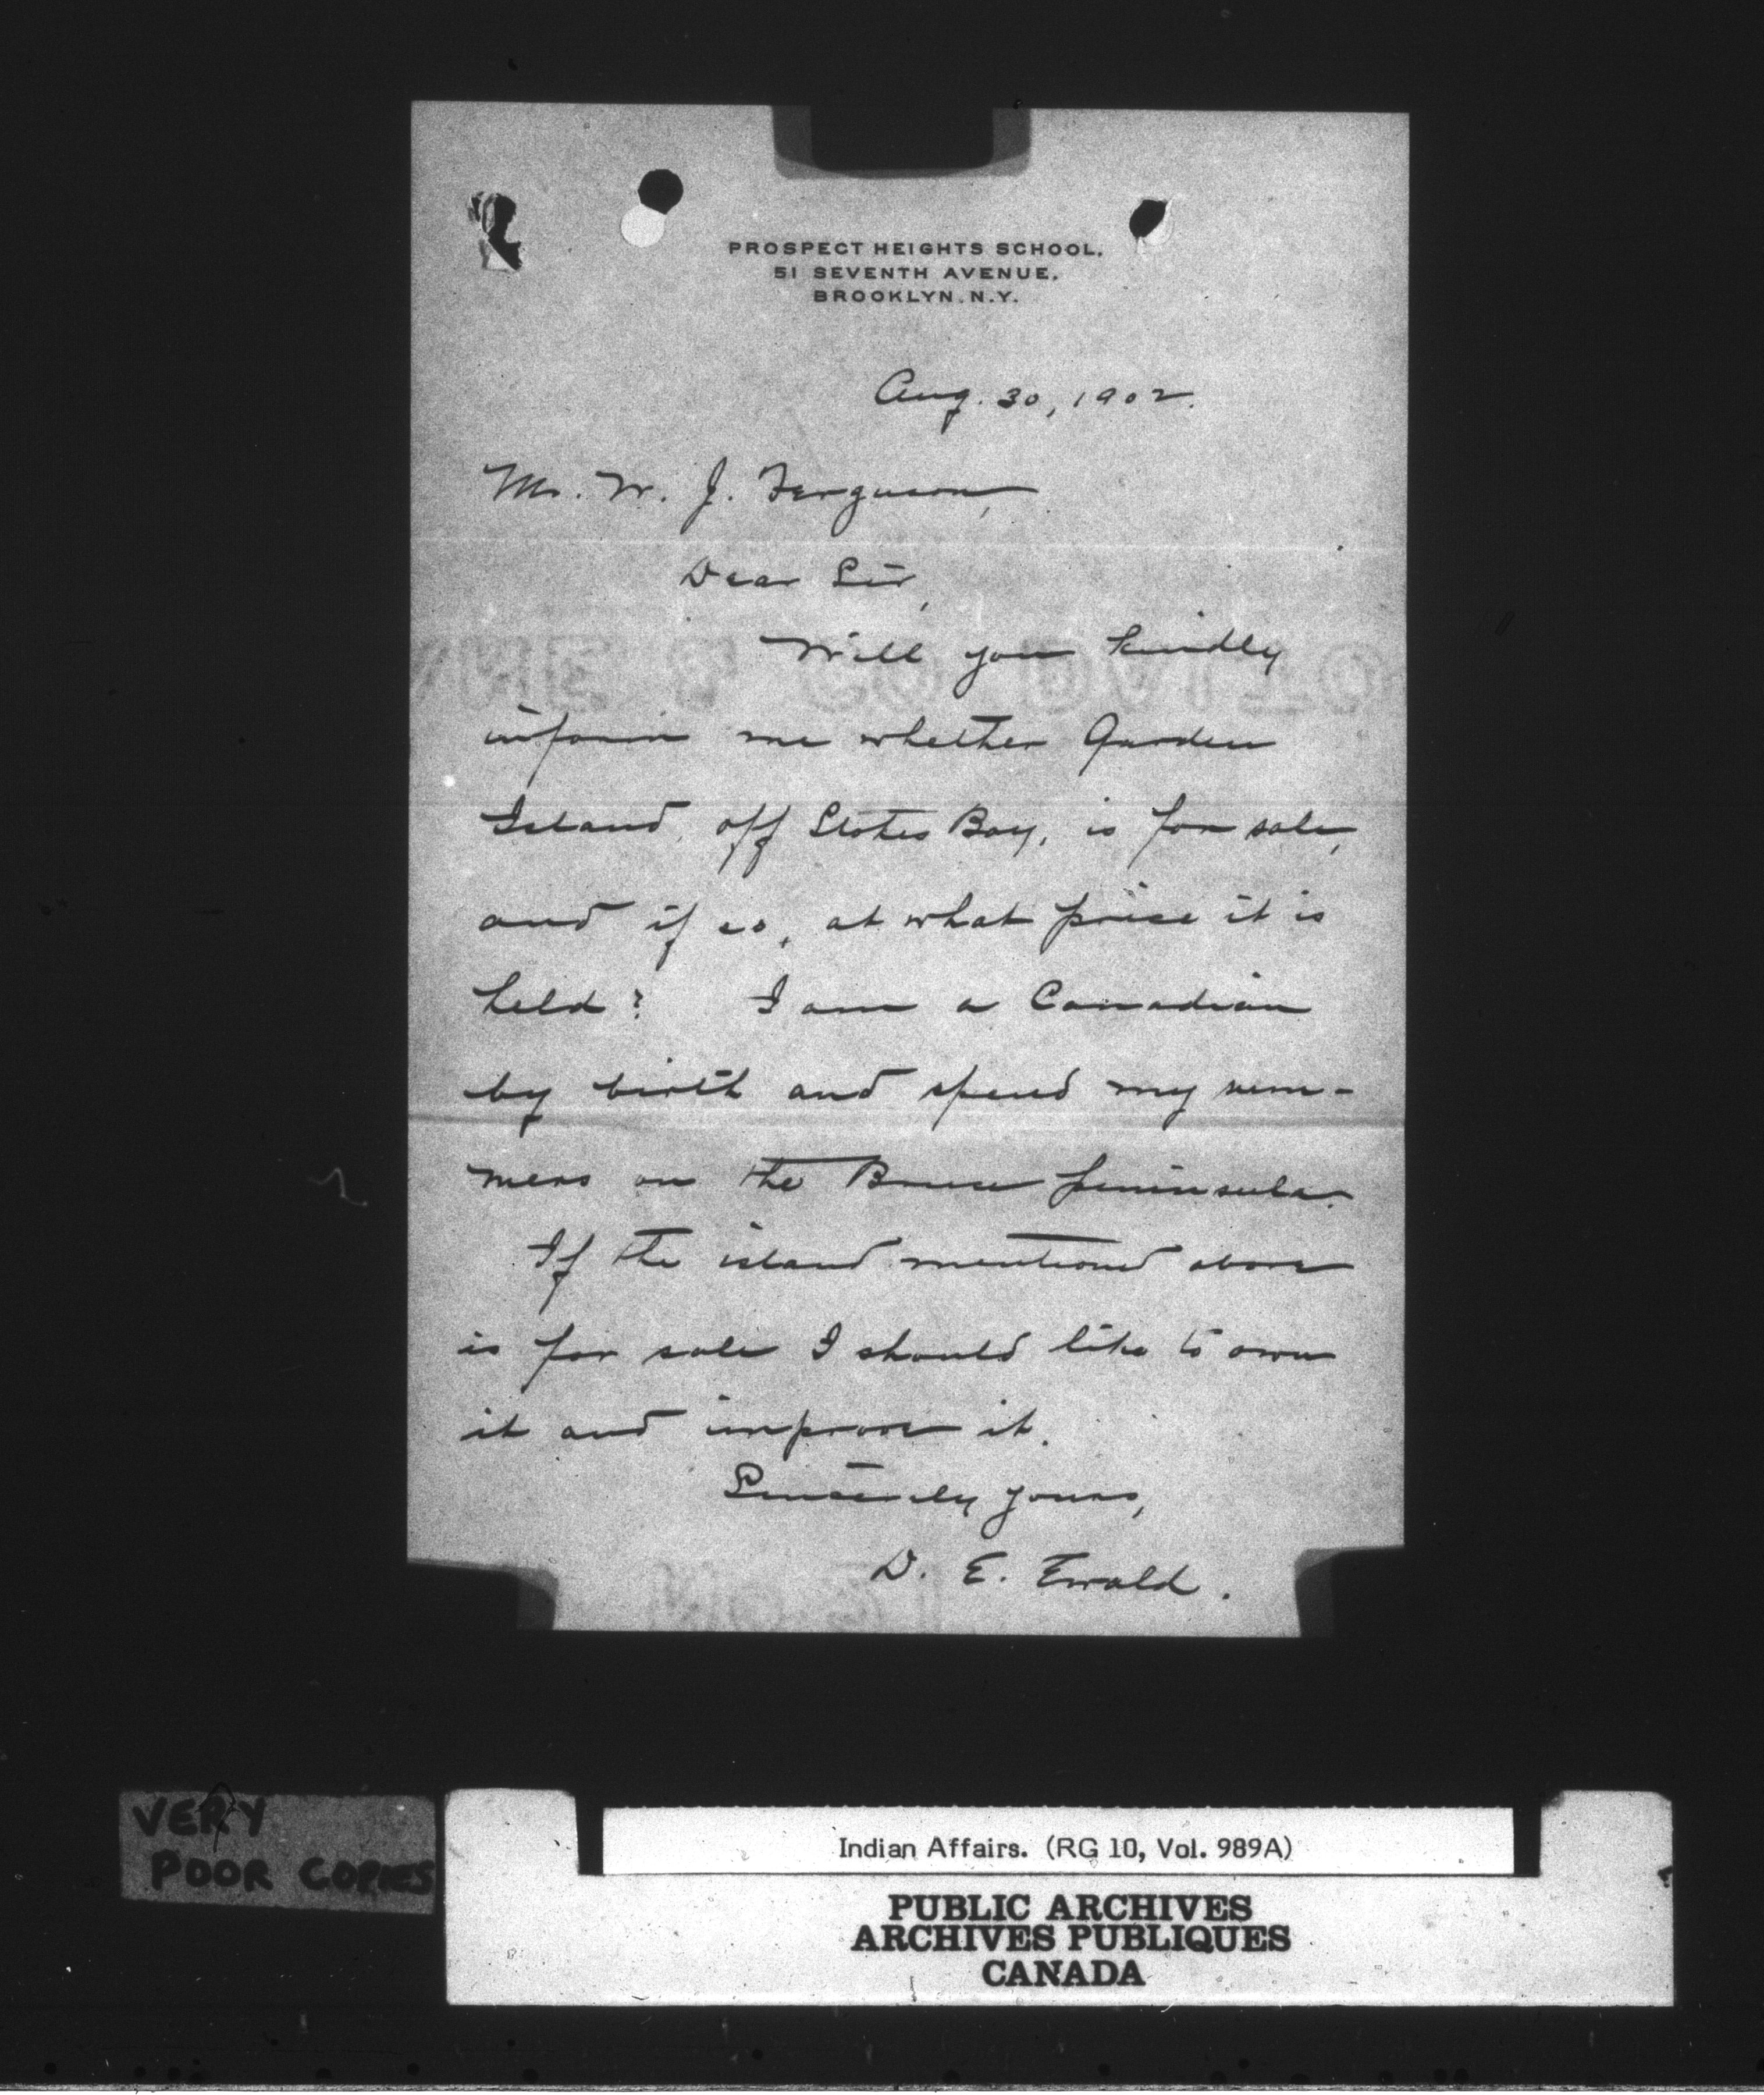 PROSPECT HEIGHTS SCHOOL.
51 SEVENTH AVENUE.
BROOKLYN. N.Y.
Aug. 30, 1902.
Mr. W. J. Ferguson,
Dear Sir,
Will you kindly
inform me whether Garden
Island, off Stokes Bay, is for sale,
and if so, at what price it is
held? I am a Canadian
by birth and spend my sum-
mers on the Bruce peninsula.
If the island mentioned above
is for sale I should like to own
it and improve it.
Sincerely yours,
D. E. Ewald.
VERY
POOR COPIES
Indian Affairs. (RG 10, Vol. 989A)
PUBLIC ARCHIVES
ARCHIVES PUBLIQUES
CANADA